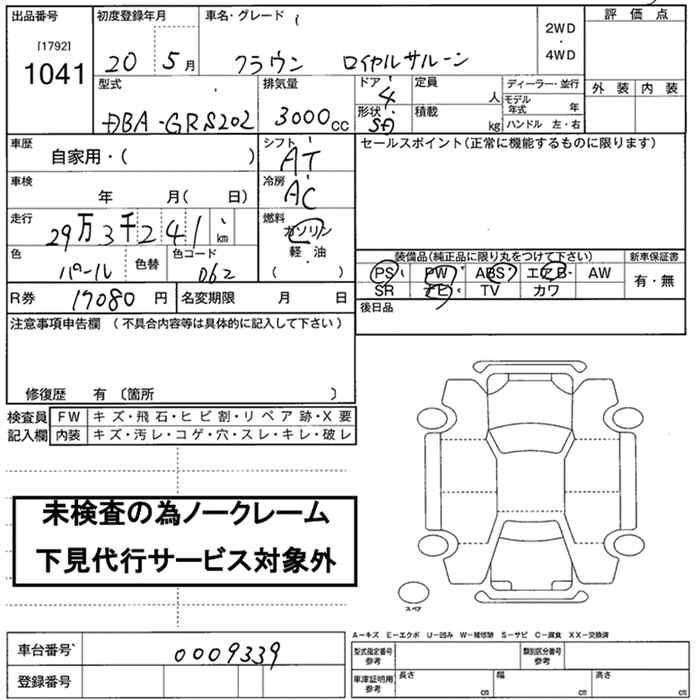 出品番号 初度登録年月 車名・グレード 2WD・4WD 評価点
[1792]
1041 20 5月 クラウン ロイヤルサルーン
型式 排気量 ドア 4 定員 人 ディーラー・並行 外装 内装
DBA-GRS202 3000cc 形状 SD 積載 kg モデル年式 年 ハンドル 左・右
車歴 自家用・( ) シフト AT セールスポイント(正常に機能するものに限ります)
車検 年 月( 日) 冷房 AC
走行 29万3千241km 燃料 ガソリン 軽・油 ( )
色 パール 色替 色コード 062
装備品(純正品に限り丸をつけて下さい) 新車保証書
PS PW ABS エアB AW 有・無
SR ナビ TV カワ
R券 17080円 名変期限 月 日 後日品
注意事項申告欄(不具合内容等は具体的に記入して下さい)
修復歴 有〔箇所 〕
検査員 FW キズ・飛石・ヒビ割・リペア跡・X要
記入欄 内装 キズ・汚レ・コゲ・穴・スレ・キレ・破レ
未検査の為ノークレーム
下見代行サービス対象外
スペア
A-キズ E-エクボ U-凹み W-補修跡 S-サビ C-腐食 XX-交換済
車台番号 0009339 型式指定番号参考 類別区分番号参考
登録番号 車庫証明用参考 長さ cm 幅 cm 高さ cm